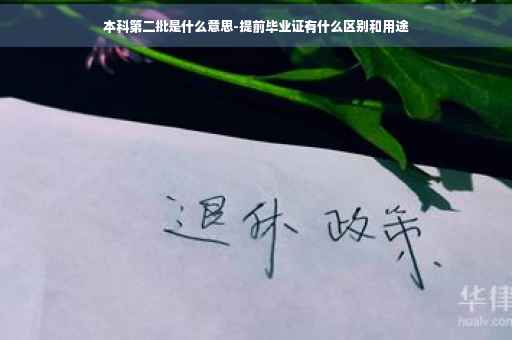 本科第二批是什么意思-提前毕业证有什么区别和用途
退休 政策
华律
hualv.com